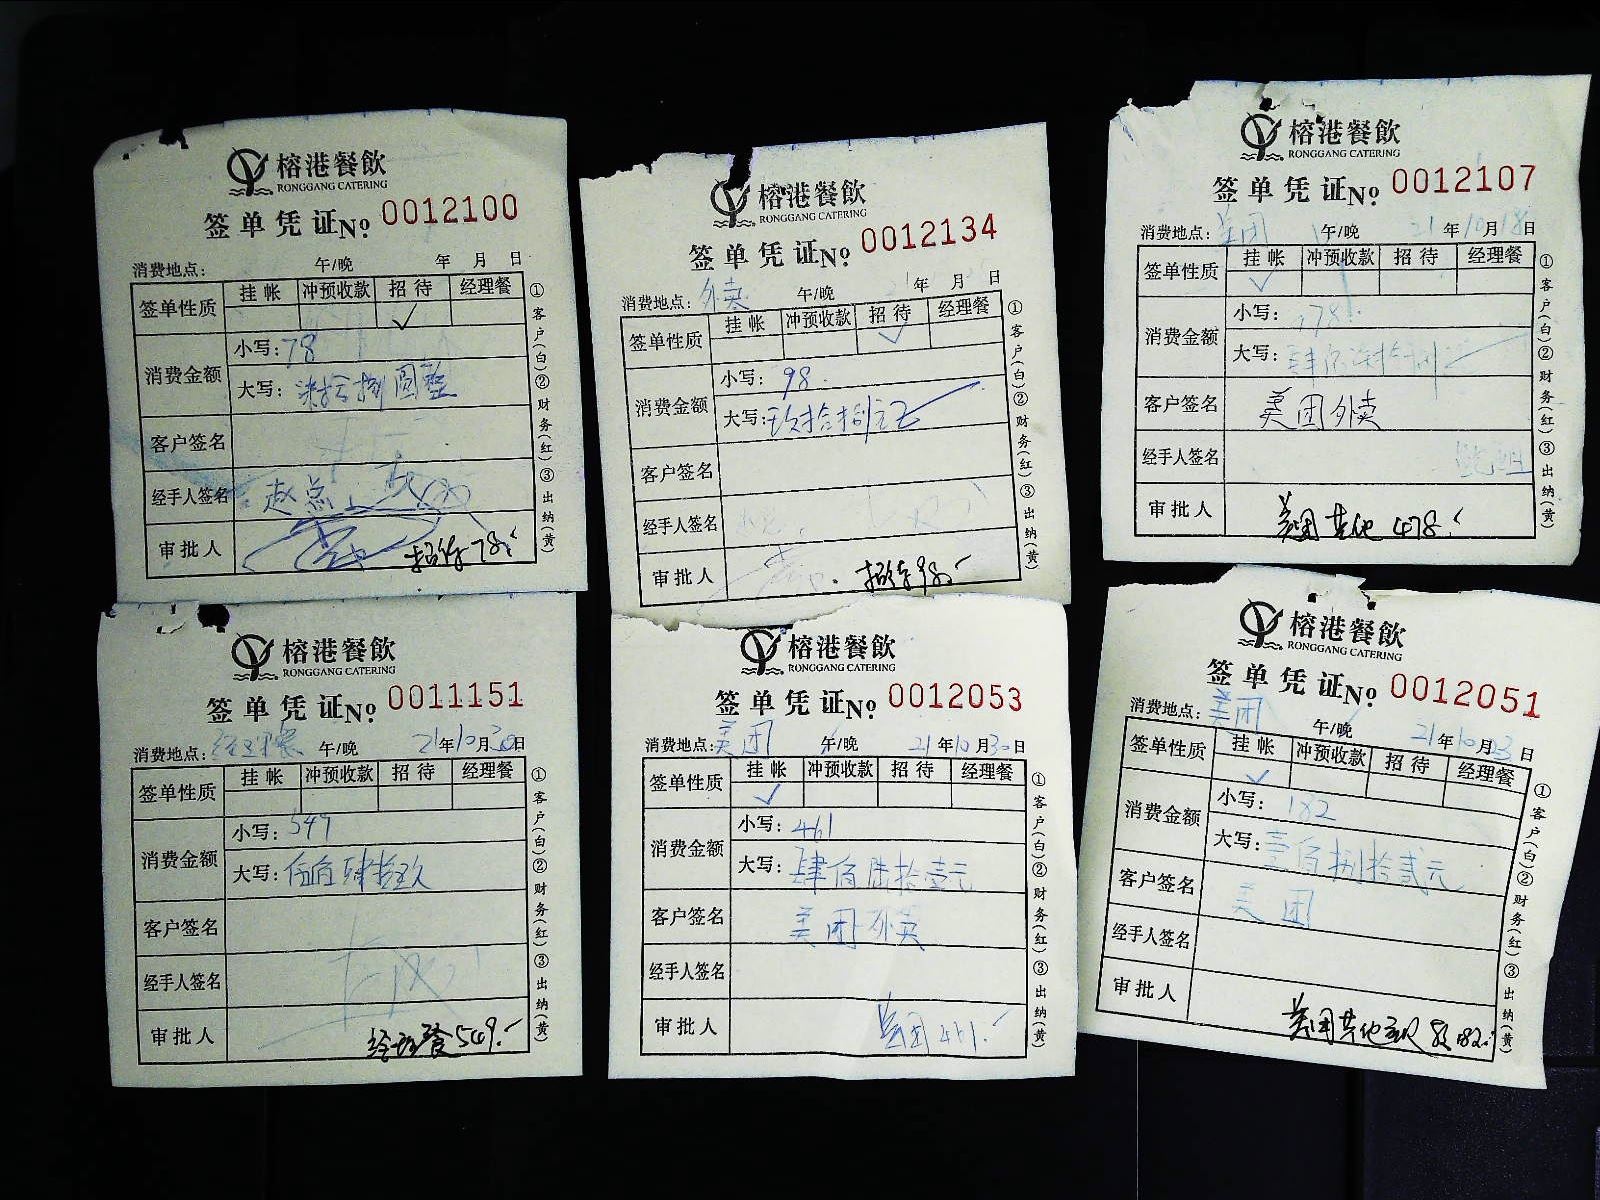 榕港餐飲
RONGGANG CATERING
签单凭证No. 0012100
消费地点: 午/晚 年 月 日
签单性质 挂帐 冲预收款 招待 经理餐
√
消费金额 小写: 78
大写: 柒拾捌圆整
客户签名
经手人签名 赵总
审批人 招待 78.
①客户(白)②财务(红)③出纳(黄)
榕港餐飲
RONGGANG CATERING
签单凭证No. 0012134
消费地点: 外卖 午/晚 年 月 日
签单性质 挂帐 冲预收款 招待 经理餐
√
消费金额 小写: 98.
大写: 玖拾捌元
客户签名
经手人签名
审批人 招待 98.
①客户(白)②财务(红)③出纳(黄)
榕港餐飲
RONGGANG CATERING
签单凭证No. 0012107
消费地点: 美团 午/晚 21年10月18日
签单性质 挂帐 冲预收款 招待 经理餐
√
消费金额 小写: 478.
大写: 肆佰柒拾捌
客户签名 美团外卖
经手人签名
审批人 美团其他 478.
①客户(白)②财务(红)③出纳(黄)
榕港餐飲
RONGGANG CATERING
签单凭证No. 0011151
消费地点: 经理餐 午/晚 21年10月30日
签单性质 挂帐 冲预收款 招待 经理餐
消费金额 小写: 549
大写: 伍佰肆拾玖
客户签名
经手人签名
审批人 经理餐 549.
①客户(白)②财务(红)③出纳(黄)
榕港餐飲
RONGGANG CATERING
签单凭证No. 0012053
消费地点: 美团 午/晚 21年10月30日
签单性质 挂帐 冲预收款 招待 经理餐
√
消费金额 小写: 461
大写: 肆佰陆拾壹元
客户签名 美团外卖
经手人签名
审批人 美团 461.
①客户(白)②财务(红)③出纳(黄)
榕港餐飲
RONGGANG CATERING
签单凭证No. 0012051
消费地点: 美团 午/晚 21年10月23日
签单性质 挂帐 冲预收款 招待 经理餐
√
消费金额 小写: 182
大写: 壹佰捌拾贰元
客户签名 美团
经手人签名
审批人 美团其他 182.
①客户(白)②财务(红)③出纳(黄)